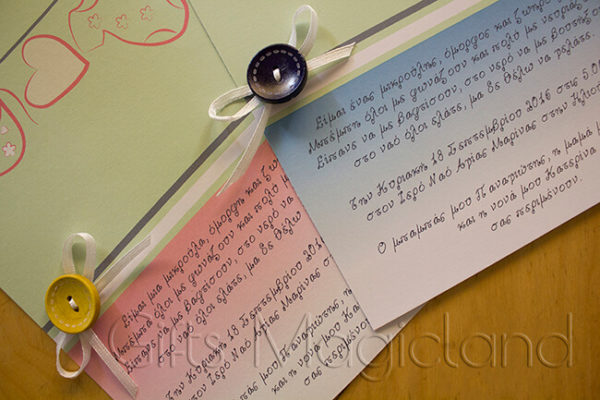 Είμαι ένας μικρούλης, όμορφος και ζωηρό
Μπέμπη όλοι με φωνάζουν και πολύ με νευριάζ
Είπανε να με βαφτίσουν, στο νερό να με βουτήξ
στο ναό όλοι ελάτε, μα δε θέλω να γελάτε.
Την Κυριακή 18 Σεπτεμβρίου 2016 στις 5.0
στον Ιερό Ναό Αγίας Μαρίνας στην
Ο μπαμπάς μου Παναγιώτης, η μαμά μ
και η νονά μου Κατερίνα
σας περιμένουν.
Είμαι μια μικρούλα, όμορφη και ζω
Μπέμπα όλοι με φωνάζουν και πολύ
Είπανε να με βαφτίσουν, στο νερό να
στο ναό όλοι ελάτε, μα δε θέλω
Την Κυριακή 18 Σεπτεμβρίου 201
στον Ιερό Ναό Αγίας Μαρίνας σ
πάς μου Παναγιώτης,
και η νονά μου Κατ
σας περιμέ
Gifts Magicland